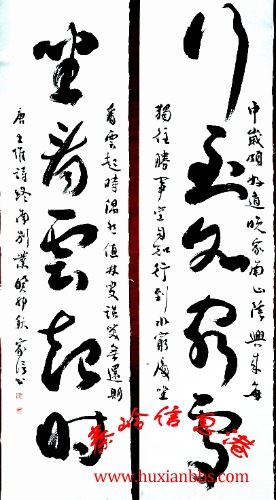 行到水窮處
中歲頗好道晚家南山陲興來每
獨往勝事空自知行到水窮處坐
坐看雲起時
看雲起時偶然值林叟談笑無還期
唐王維詩終南別業癸卯秋家信
秦岭信息港
www.huxianbbs.com